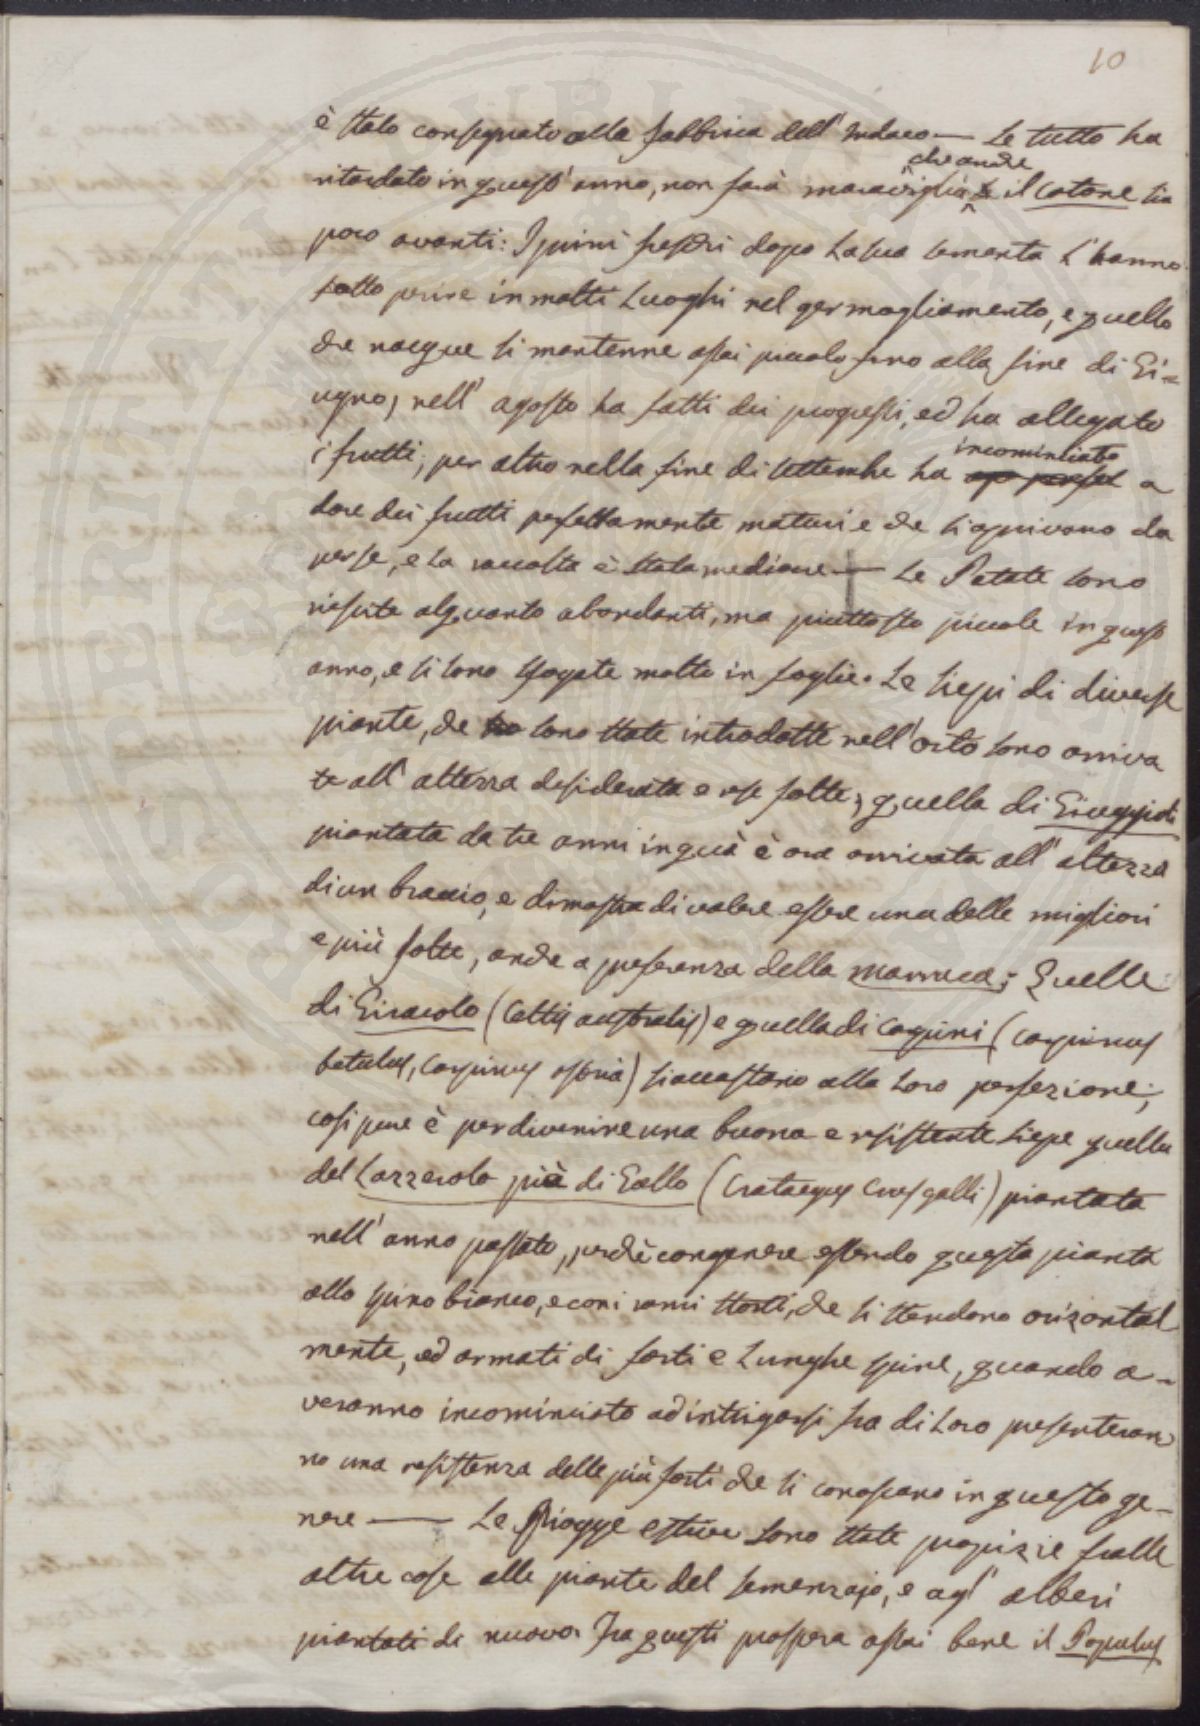 10
è stato consegnato alla fabbrica dell'Indaco — Se tutto ha
ritardato in quest'anno, non sarà maraviglia che anche il Cotone sia
poco avanti: I primi freschi dopo la sua sementa l'hanno
fatto perire in molti luoghi nel germogliamento, e quello
che nacque si mantenne assai piccolo fino alla fine di Gi=
ugno, nell'agosto ha fatti dei progressi, ed ha allegato
i frutti; per altro nella fine di Settembre ha incominciato a
dare dei frutti perfettamente maturi e che si aprivano da
per se, e la raccolta è stata mediocre — Le Patate sono
riescite alquanto abondanti, ma piuttosto piccole in quest'
anno, e si sono sfogate molto in foglie. Le siepi di diverse
piante, che sono state introdotte nell'orto sono arriva
te all'altezza desiderata e rese folte; quella di Giuggioli
piantata da tre anni in quà è ora arrivata all'altezza
di un braccio, e dimostra di volere essere una delle migliori
e più folte, anche a preferenza della marruca; Quelle
di Giracolo (Celtis australis) e quella di Carpini (Carpinus
betulus, Carpinus ostria) si accostano alla loro perfezione;
così pure è per divenire una buona e resistente siepe quella
del Lazzerolo piè di Gallo (Crataegus Crus galli) piantata
nell'anno passato, perchè congenere essendo questa pianta
allo spino bianco, e con i rami storti, che si stendono orizontal
mente, ed armati di forti e lunghe spine, quando a-
veranno incominciato ad intrigarsi fra di loro presenteran
no una resistenza delle più forti che si conoscano in questo ge-
nere — Le Piogge estive sono state propizie fralle
altre cose alle piante del semenzajo, e agl'alberi
piantati di nuovo. Fra questi prospera assai bene il Populus